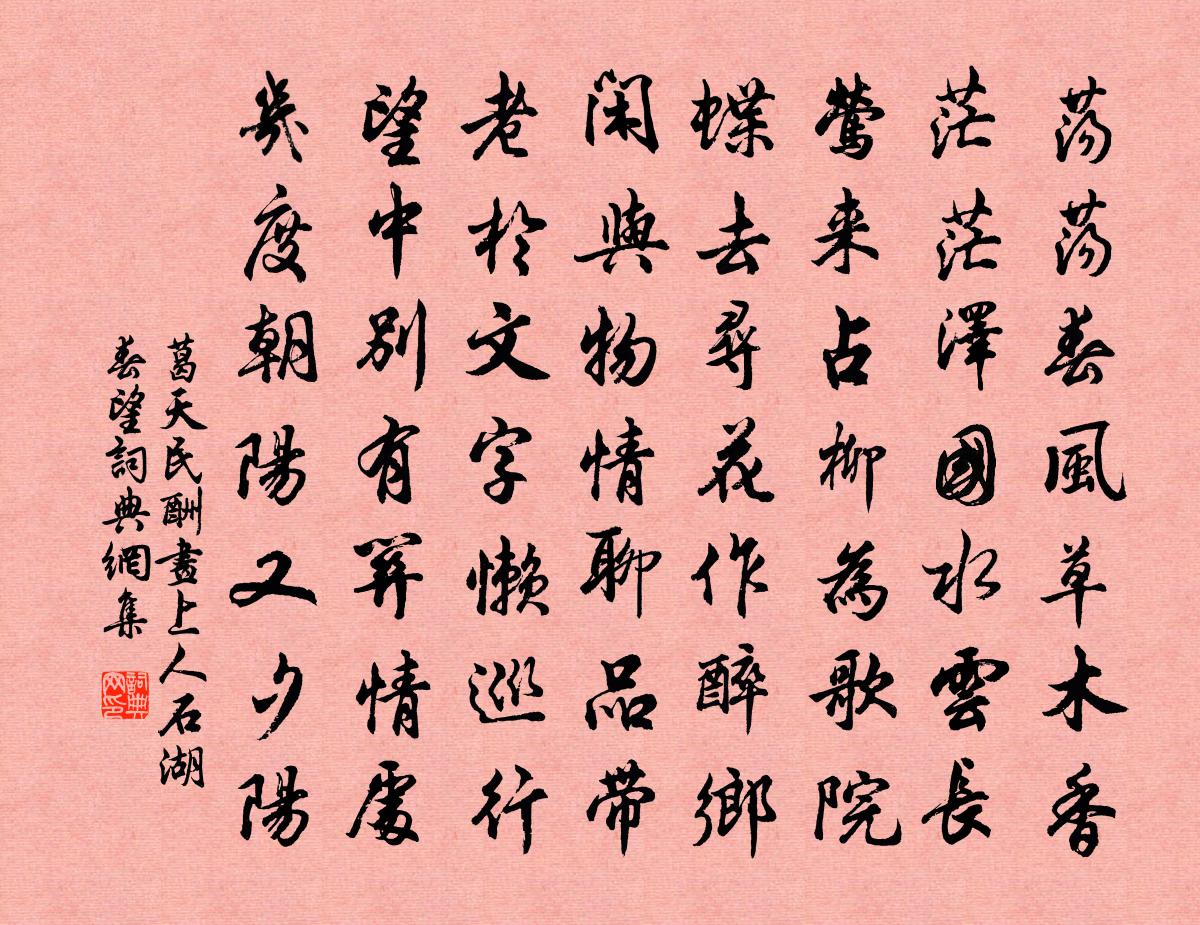 蕩蕩春風草木香
茫茫澤國水雲長
鶯来占柳為歌院
蝶去尋花作醉鄉
閑與物情聊品帶
老於文字懶巡行
望中別有關情處
幾度朝陽又夕陽
葛天民酬畫上人石湖
春望詞典網集
詞典
网印